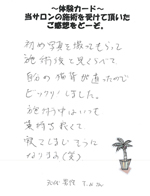 ～体験カード～
当サロンの施術を受けて頂いた
ご感想をどーぞ。
初め写真を撮ってもらって
施術後と見くらべて
自分の
ビックリしました。
施術中はいつも
気持ち良くて
寝てしまいそうに
なります(笑)